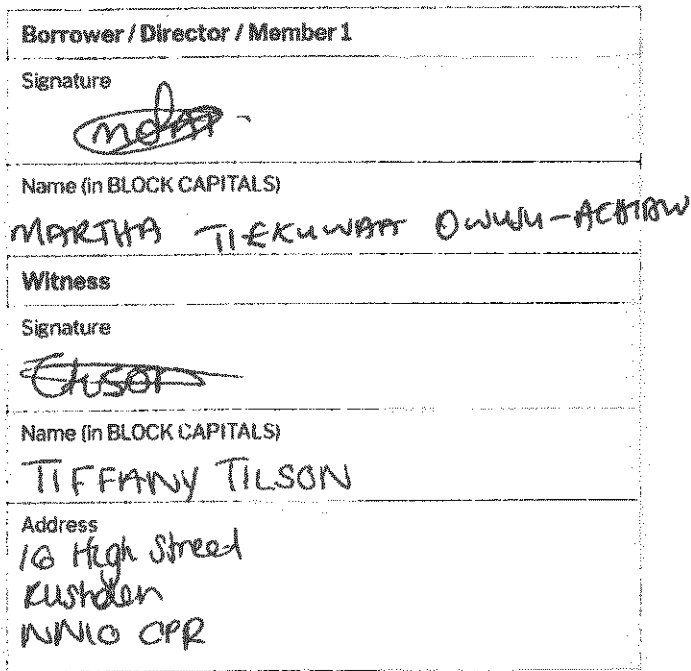 Borrower / Director / Member 1
Signature
Name (in BLOCK CAPITALS)
MARTHA TIEKUWAA OWUSU-ACHIAW
Witness
Signature
Name (in BLOCK CAPITALS)
TIFFANY TILSON
Address
16 High Street
Rushden
NN10 0PR